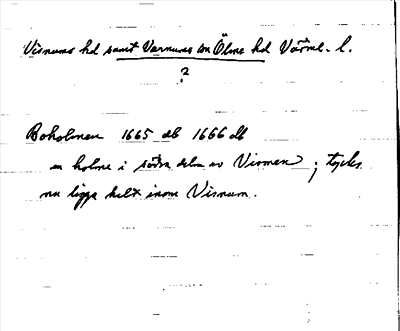 Visnums hd samt Varnums sn Ölme hd Värml. l.
?
Boholmen 1665 db 1666 db
en holme i södra delen av Vismen; tycks
nu ligga helt inom Visnum.